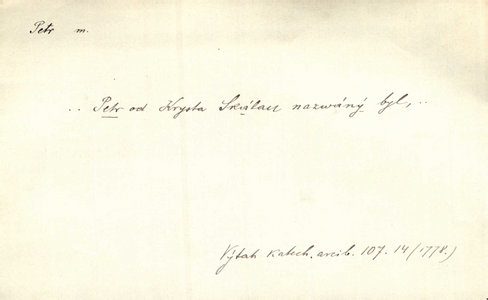 Petr m.
.. Petr od Krysta Skálau nazwáný byl, ..
Výtah katech. arcib. 107. 14 (1778.)